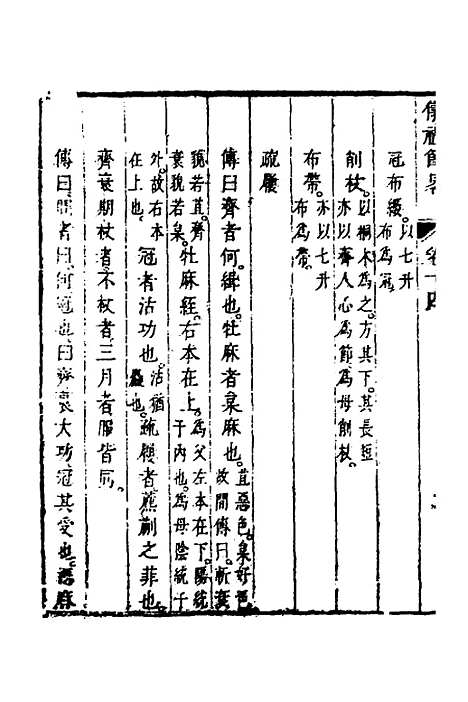 儀禮節畧 卷十四
冠布纓。以七升布爲冠。
削杖。以桐木爲之。方其下。其長短亦以齊人心爲節。爲母削杖。
布帶。亦以七升布爲帶。
疏屨
傳曰。齊者何。緝也。牡麻者枲麻也。苴惡色。枲好色。故間傳曰。斬衰
貌若苴。齊衰貌若枲。牡麻絰。右本在上。爲父左本在下。陽統于內也。爲母陰統于
外。故右本在上也。冠者沽功也。沽猶麤也。疏屨者藨蒯之菲也。
齊衰期杖者。不杖者。三月者。服皆同。
傳曰。問者曰。何冠也。曰。齊衰大功。冠其受也。緦麻